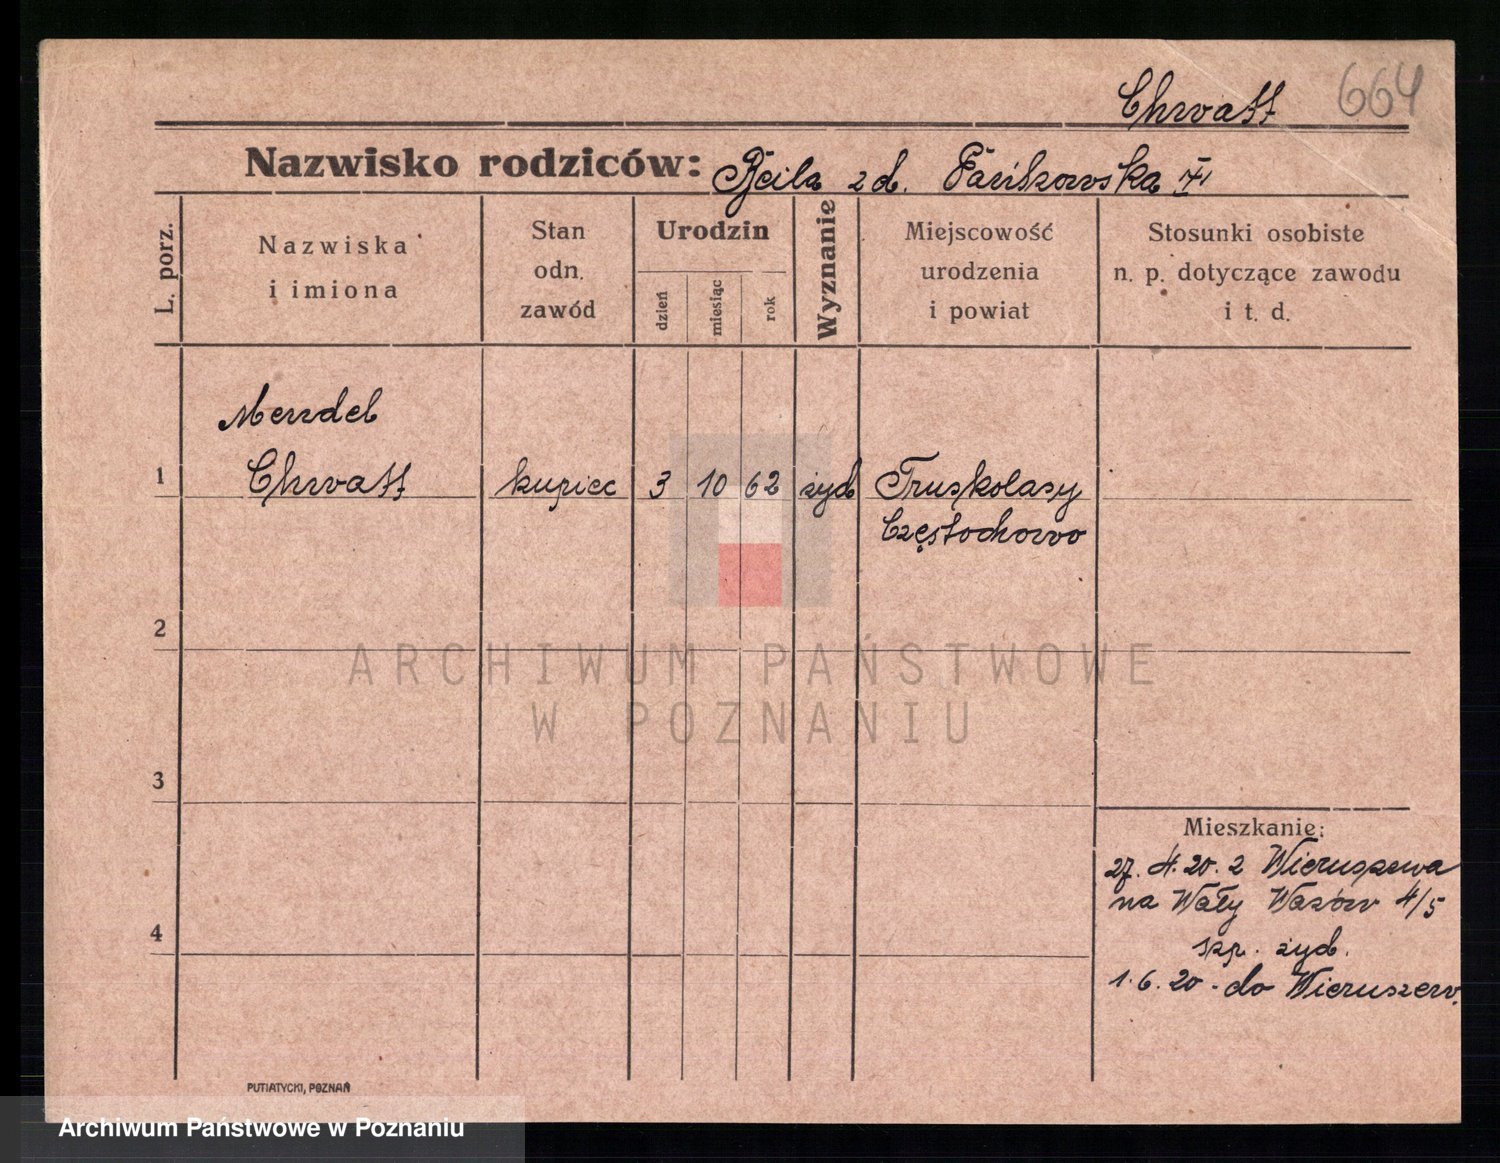 Chwatt 664
Nazwisko rodziców: Bejla z d. Pańkowska
L. porz.
Nazwiska
i imiona
Stan
odn.
zawód
Urodzin
dzień
miesiąc
rok
Wyznanie
Miejscowość
urodzenia
i powiat
Stosunki osobiste
n. p. dotyczące zawodu
i t. d.
Mendel
1 Chwatt kupiec 3 10 62 żyd Truskolasy
Częstochowo
2
ARCHIWUM PAŃSTWOWE
W POZNANIU
3
Mieszkanie:
27. 4. 20. z Wieruszewa
na Wały Wazów 4/5
szp. żyd.
4
1. 6. 20. do Wieruszew.
PUTIATYCKI, POZNAŃ
Archiwum Państwowe w Poznaniu